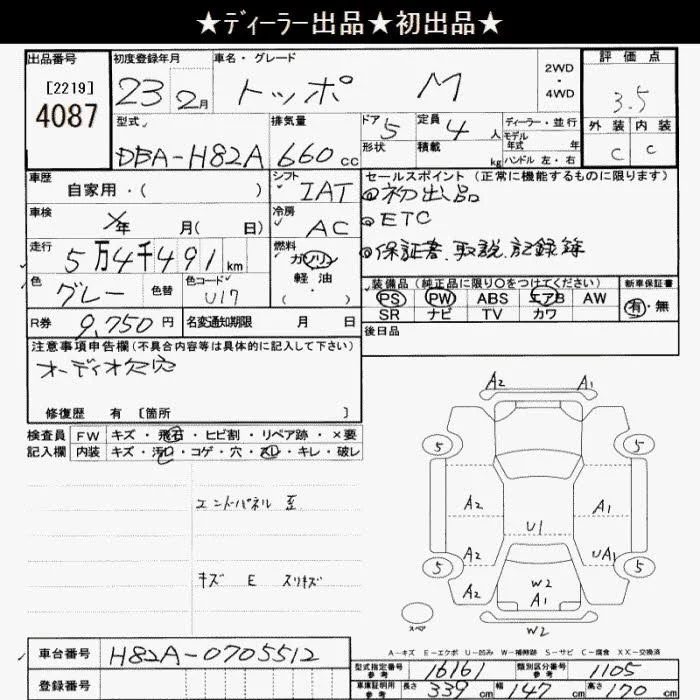 ★ディーラー出品★初出品★
出品番号 初度登録年月 車名・グレード 評価点
[2219] 23 2月 トッポ M 2WD・4WD 3.5
4087
型式 排気量 ドア 定員 ディーラー・並行 外装 内装
DBA-H82A 660cc 5 4人 モデル年式 年 C C
形状 積載 kg ハンドル 左・右
車歴 シフト セールスポイント(正常に機能するものに限ります)
自家用・( ) IAT ①初出品
車検 年 月( 日) 冷房 AC ②ETC
走行 5万4千491km 燃料 ガソリン ③保証書、取説、記録簿
軽油
( ・ )
色 グレー 色替 色コード U17
装備品(純正品に限り○をつけてください) 新車保証書
PS PW ABS エアB AW 有・無
SR ナビ TV カワ
R券 9,750円 名変通知期限 月 日 後日品
注意事項申告欄(不具合内容等は具体的に記入して下さい)
オーディオ欠穴
修復歴 有 [箇所 ]
検査員 FW キズ・飛石・ヒビ割・リペア跡・×要
記入欄 内装 キズ・汚れ・コゲ・穴・スレ・キレ・破レ
エンドパネル 歪
キズ E スリキズ
A2 A1
5 5
A2 A1
U1
A2 UA1
5 5
A2 W2
A1
スペア W2
A-キズ E-エクボ U-凹み W-補修跡 S-サビ C-腐食 XX-交換済
車台番号 H82A-0705512
型式指定番号 参考 16161 類別区分番号 参考 1105
登録番号
車庫証明用 参考 長さ 339cm 幅 147cm 高さ 170cm